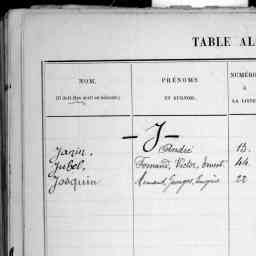 TABLE AL
NOM.
(Il doit être écrit en bâtarde.)
PRÉNOMS
ET SURNOM.
NUMÉRO
À
LA LISTE
— J —
Janin. André 13.
Jubel. Fernand, Victor, Ernest 44
Josquin Armand, Georges, Eugène 22